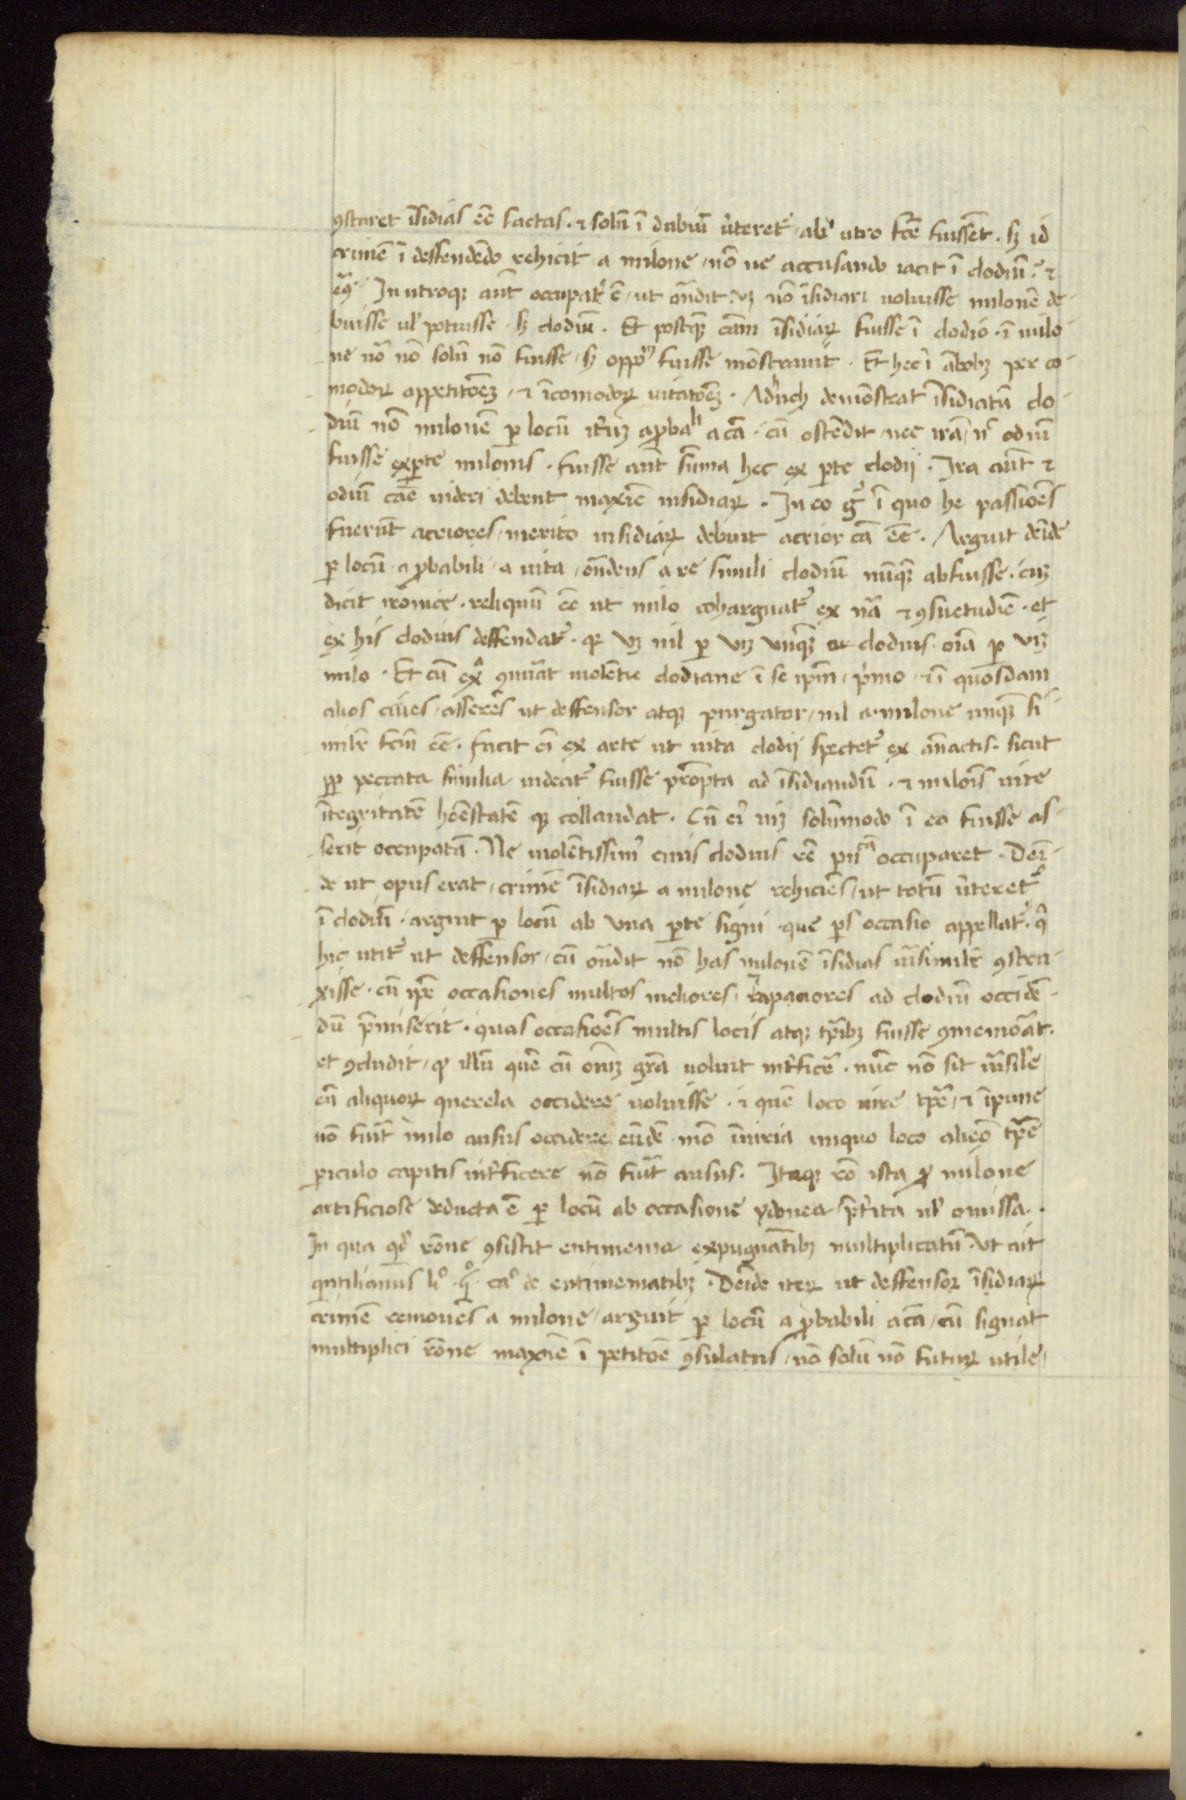 ꝯstaret īsidias eē factas · & solū ī dubiū ūteret᷑ · ab utro fc̄e fuissēt · sꝫ id
crimē ī deffendēdo rehicit a milone / nō ue accusando iacit ī clodiū ·
In utroqꝫ aūt occupat᷑ ē / ut oñdit · uꝫ nō īsidiari uoluisse milonē de
buisse ul' potuisse · sꝫ clodiū · Et postqꝫ cām īsidiaꝝ fuisse ī clodio · ī milo
ne nō solū nō fuisse / sꝫ oppoᵐ fuisse mōstrauit · Et hec ī ābobꝫ per co
modoꝝ appetitōeꝫ / & īcomodoꝝ uitatōeꝫ · demōstrat īsidiatū clo
diū nō milonē ꝑ locū a ꝓbaˡⁱ a cā · cū ostendit / nec irā / nᶜ odiū
fuisse ex ꝑte milonis · fuisse aūt sūma hec ex ꝑte clodij · Ira aūt &
odiū cāe uideri debent maxīe insidiaꝝ · In eo gͦ ī quo he passiōes
fuerūt acriores / merito insidiaꝝ debuit acrior cā eē · Arguit deīde
ꝑ locū a ꝓbabili · a uita / oñdens a re simili clodiū nūqꝫ abfuisse · cuꝫ
dicit ironice · reliquū eē ut milo coharguat᷑ ex nā & ꝯsuetudīe · et
ex his clodius deffendat᷑ · qꝫ nil ꝑ uiꝫ unqꝫ clodius · oīa ꝑ uiꝫ
milo · Et cū uiolētie clodiane ī se ipm̄ / pͥmo / & ī quosdam
alios ciues / asserēs ut deffensor atqꝫ purgator / nil a milone unqꝫ si
mile fc̄m eē · facit eī ex arte ut uita clodij spectet᷑ ex añactis · sicut
ꝓp peccata similia uideat᷑ fuisse prōpta ad īsidiandū · & milōis uite
ītegritatē hōestatē qꝫ collaudat · Cū eī uiꝫ solūmodo ī eo fuisse as
serit occupatā · Ne uiolētissimꝰ ciuis clodius rē pu᷑ᵃᵐ occuparet · Deī
de ut opus erat / crimē īsidiaꝝ a milone rehiciēs / ut totū ūteret᷑
ī clodiū · arguit ꝑ locū ab una ꝑte signi · que ꝑs occasio appellat᷑ · qᵃ
hic utit᷑ ut deffensor / cū oñdit nō has milonē īsidias uīsimile ꝯstru
xisse · cū ipse occasiones multos meliores / & apaciores ad clodiū occidē
dū p̄miserit · quas occasiōes multis locis atqꝫ tpībꝫ fuisse ꝯmemōat ·
et ꝯcludit / qꝫ illū quē cū oniꝫ grā uoluit int᷑ficē · nūc nō sit uīsile
cū aliquoꝝ querela occidere uoluisse · & quē loco iure tpē / & īpune
nō fuit milo ausus occidere eūdē mō īiuria iniquo loco aliēo tpe
ꝑiculo capitis int᷑ficere nō fuit ausus · Itaqꝫ rō ista ꝓ milone
artificiose deducta ē ꝑ locū ab occasione ydonea / p̄t᷑ita ul' omissa ·
In qua qd᷑ rōne ꝯsistit entimema expugnātibꝫ multiplicatū · Ut ait
qntilianus lⁱᵒ · qᵒ · caᵒ de entimematibꝫ · Deīde iteꝝ ut deffensor īsidiaꝝ
crimē remouēs a milone / arguit ꝑ locū a ꝓbabili a cā / cū signat
multiplici rōne maxīe ī petitōe ꝯsulatus / nō solū nō futuꝝ utile /